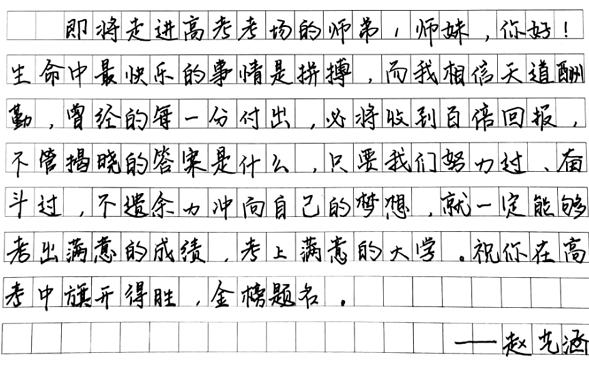 即将走进高考考场的师弟，师妹，你好！
生命中最快乐的事情是拼搏，而我相信天道酬
勤，曾经的每一分付出，必将收到百倍回报，
不管揭晓的答案是什么，只要我们努力过、奋
斗过，不遗余力冲向自己的梦想，就一定能够
考出满意的成绩，考上满意的大学。祝你在高
考中旗开得胜，金榜题名。
——赵光涵